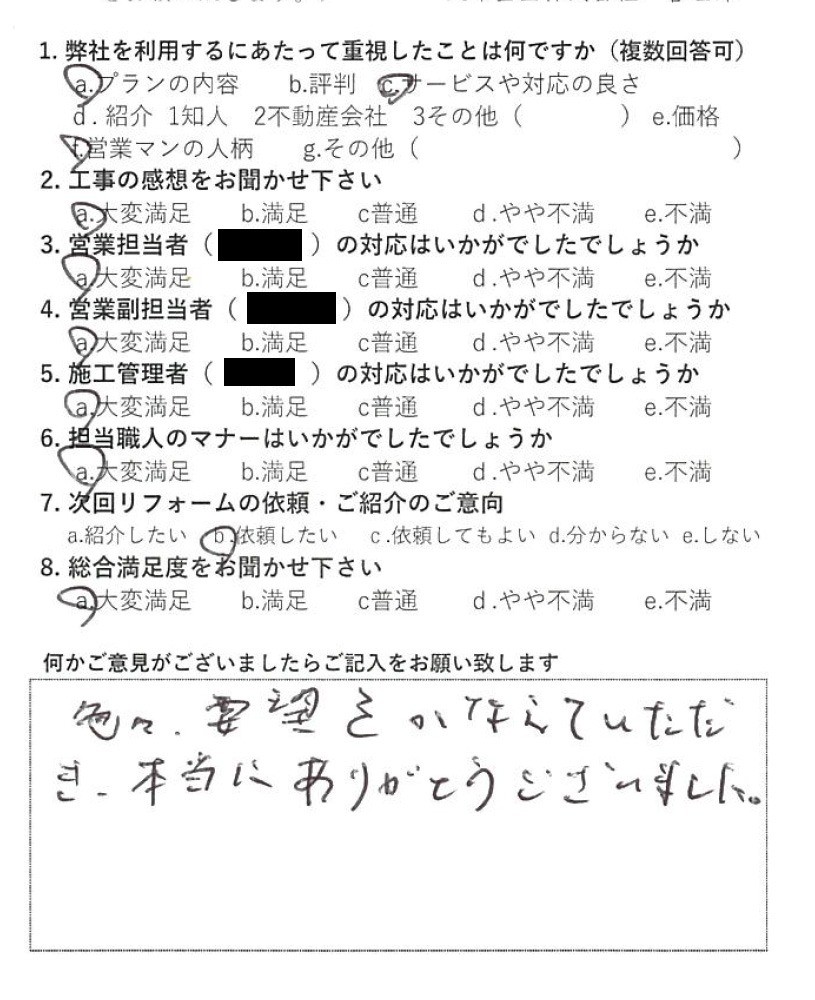 1. 弊社を利用するにあたって重視したことは何ですか（複数回答可）
a.プランの内容 b.評判 c.サービスや対応の良さ
d.紹介 1知人 2不動産会社 3その他（ ） e.価格
f.営業マンの人柄 g.その他（ ）
2. 工事の感想をお聞かせ下さい
a.大変満足 b.満足 c普通 d.やや不満 e.不満
3. 営業担当者（ ）の対応はいかがでしたでしょうか
a.大変満足 b.満足 c普通 d.やや不満 e.不満
4. 営業副担当者（ ）の対応はいかがでしたでしょうか
a.大変満足 b.満足 c普通 d.やや不満 e.不満
5. 施工管理者（ ）の対応はいかがでしたでしょうか
a.大変満足 b.満足 c普通 d.やや不満 e.不満
6. 担当職人のマナーはいかがでしたでしょうか
a.大変満足 b.満足 c普通 d.やや不満 e.不満
7. 次回リフォームの依頼・ご紹介のご意向
a.紹介したい b.依頼したい c.依頼してもよい d.分からない e.しない
8. 総合満足度をお聞かせ下さい
a.大変満足 b.満足 c普通 d.やや不満 e.不満
何かご意見がございましたらご記入をお願い致します
色々、要望をかなえていただ
き、本当にありがとうございました。